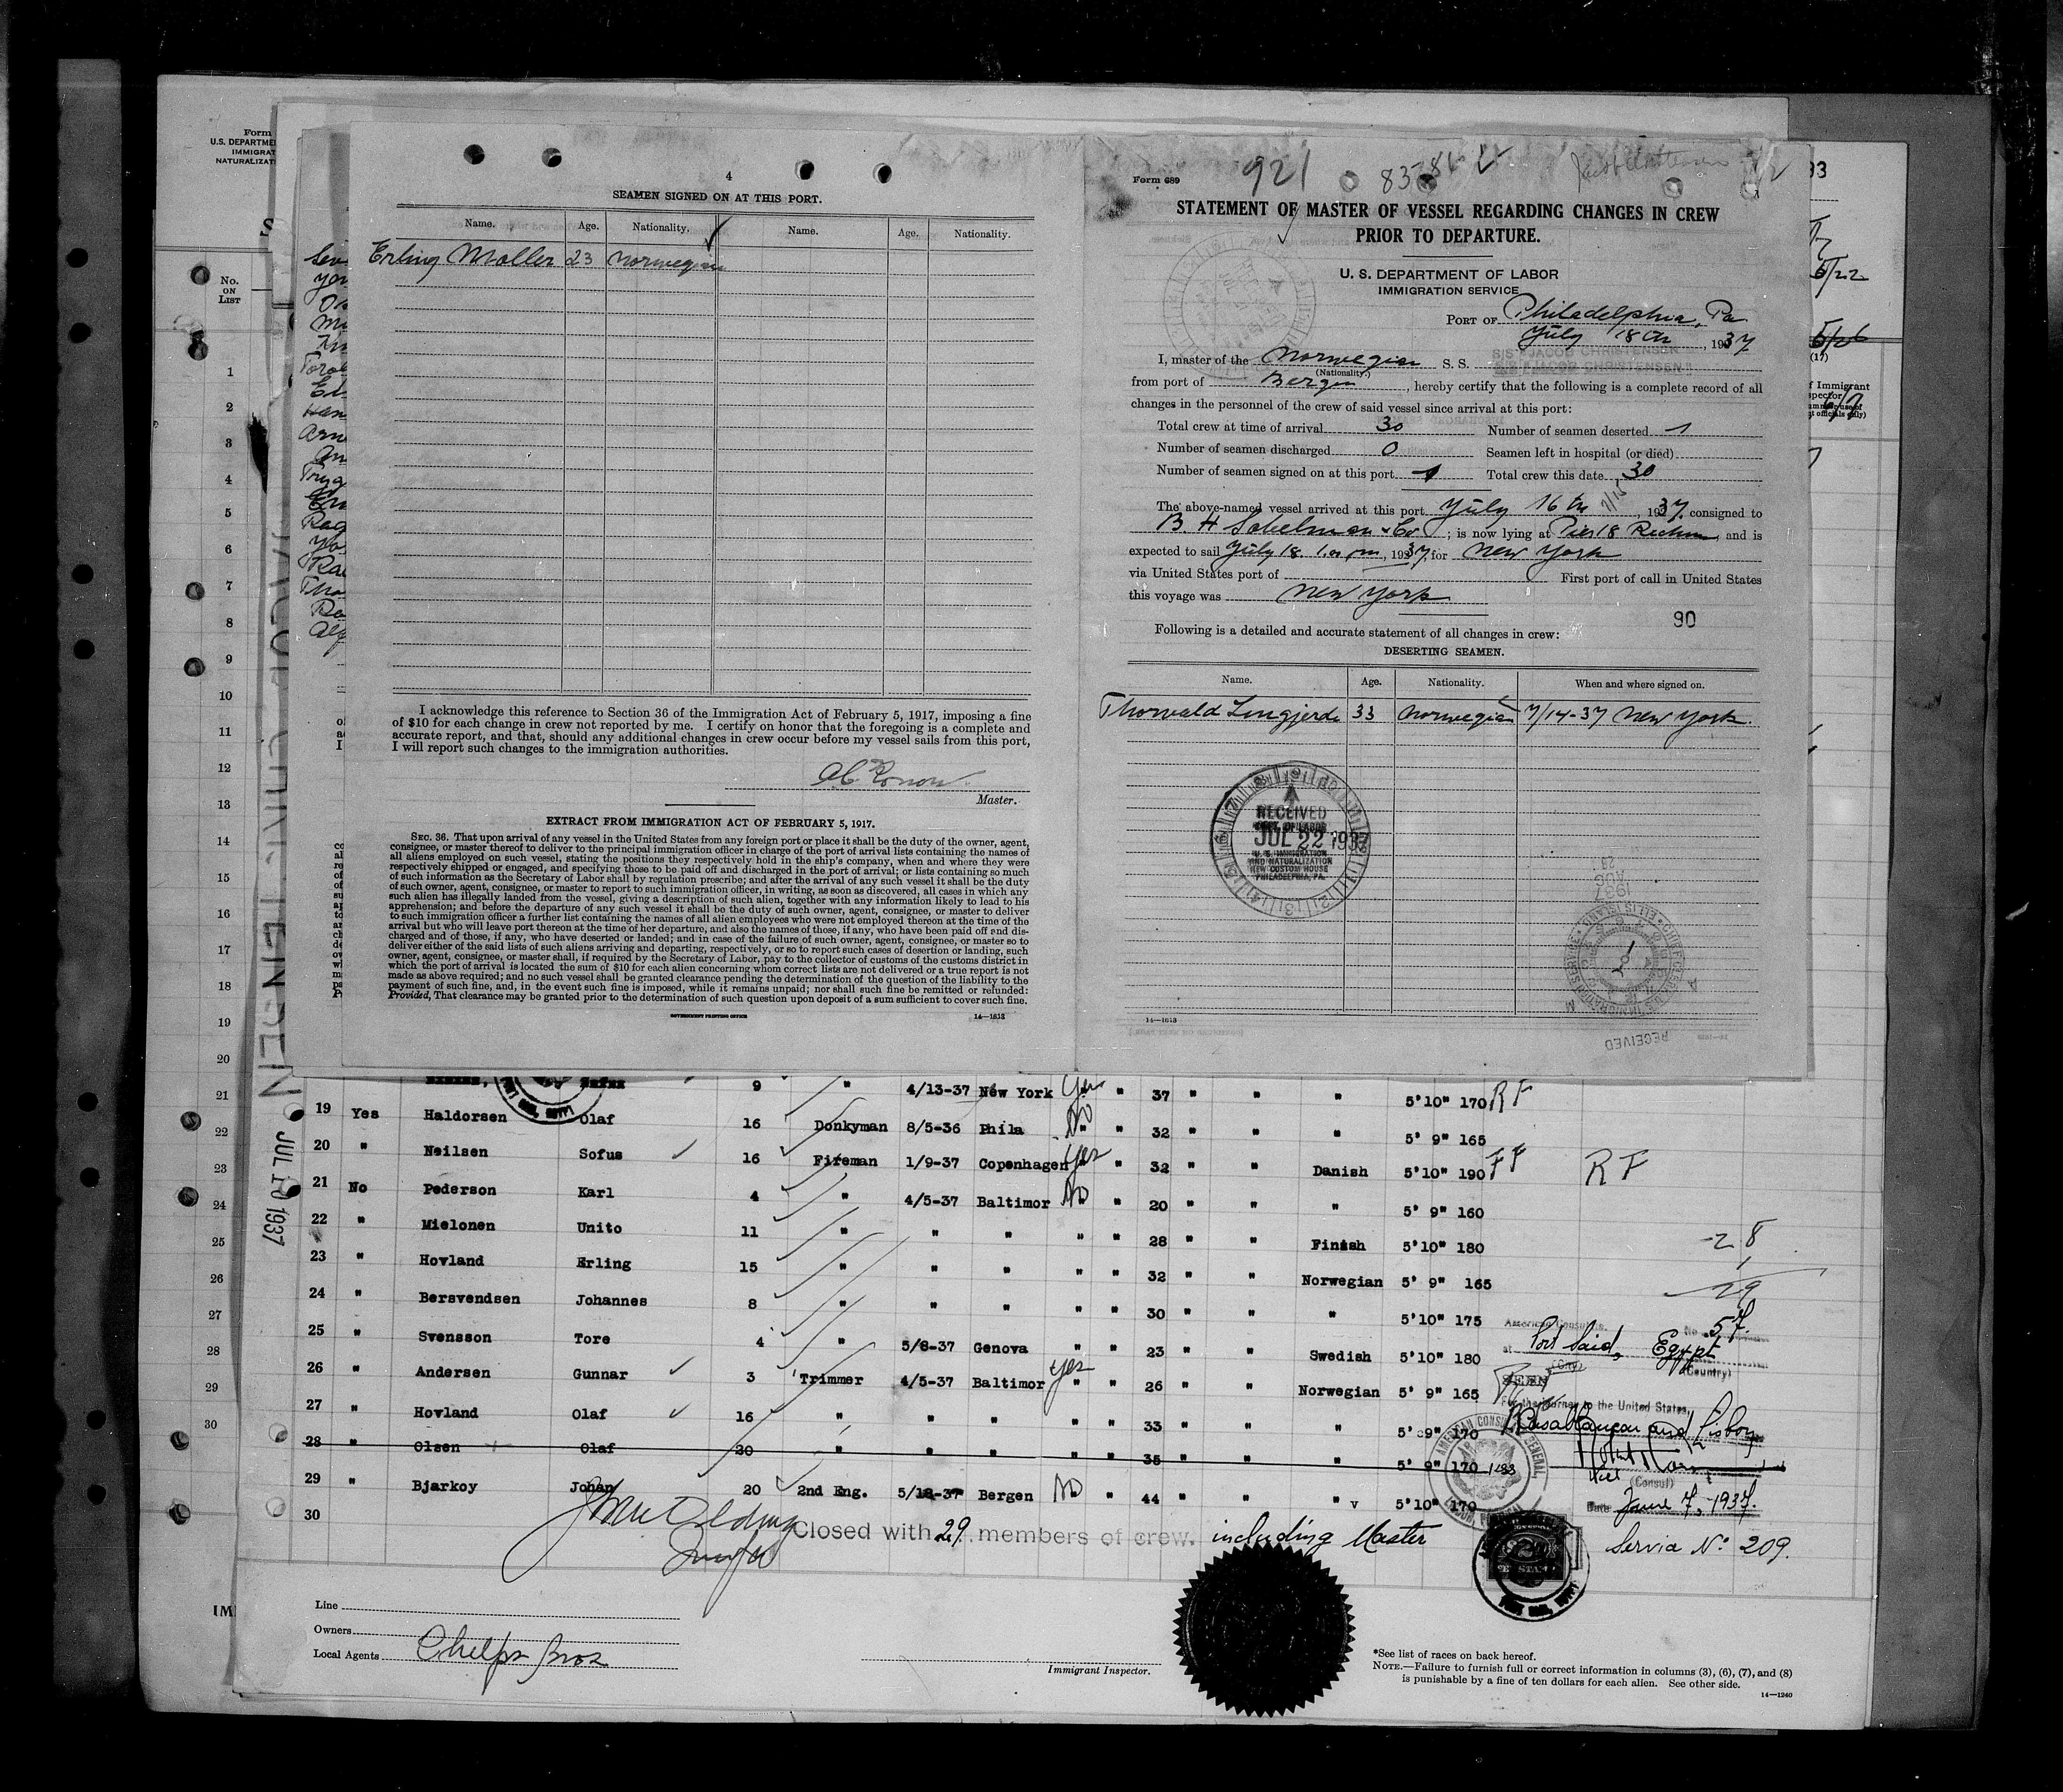 4
SEAMEN SIGNED ON AT THIS PORT.
Name. Age. Nationality. Name. Age. Nationality.
Erling Moller 23 Norwegian
I acknowledge this reference to Section 36 of the Immigration Act of February 5, 1917, imposing a fine
of $10 for each change in crew not reported by me. I certify on honor that the foregoing is a complete and
accurate report, and that, should any additional changes in crew occur before my vessel sails from this port,
I will report such changes to the immigration authorities.
Master.
EXTRACT FROM IMMIGRATION ACT OF FEBRUARY 5, 1917.
SEC. 36. That upon arrival of any vessel in the United States from any foreign port or place it shall be the duty of the owner, agent,
consignee, or master thereof to deliver to the principal immigration officer in charge of the port of arrival lists containing the names of
all aliens employed on such vessel, stating the positions they respectively hold in the ship's company, when and where they were
respectively shipped or engaged, and specifying those to be paid off and discharged in the port of arrival; or lists containing so much
of such information as the Secretary of Labor shall by regulation prescribe; and after the arrival of any such vessel it shall be the duty
of such owner, agent, consignee, or master to report to such immigration officer, in writing, as soon as discovered, all cases in which any
such alien has illegally landed from the vessel, giving a description of such alien, together with any information likely to lead to his
apprehension; and before the departure of any such vessel it shall be the duty of such owner, agent, consignee, or master to deliver
to such immigration officer a further list containing the names of all alien employees who were not employed thereon at the time of the
arrival but who will leave port thereon at the time of her departure, and also the names of those, if any, who have been paid off and dis-
charged and of those, if any, who have deserted or landed; and in case of the failure of such owner, agent, consignee, or master so to
deliver either of the said lists of such aliens arriving and departing, respectively, or so to report such cases of desertion or landing, such
owner, agent, consignee, or master, shall, if required by the Secretary of Labor, pay to the collector of customs of the customs district in
which the port of arrival is located the sum of $10 for each alien concerning whom correct lists are not delivered or a true report is not
made as above required; and no such vessel shall be granted clearance pending the determination of the question of the liability to the
payment of such fine, and, in the event such fine is imposed, while it remains unpaid; nor shall such fine be remitted or refunded:
Provided, That clearance may be granted prior to the determination of such question upon deposit of a sum sufficient to cover such fine.
GOVERNMENT PRINTING OFFICE 14—1613
Form 689 921
STATEMENT OF MASTER OF VESSEL REGARDING CHANGES IN CREW
PRIOR TO DEPARTURE.
U. S. DEPARTMENT OF LABOR
IMMIGRATION SERVICE
PORT OF Philadelphia, Pa
July 18th, 1937
I, master of the Norwegian S. S. S/S "JACOB CHRISTENSEN"
(Nationality.)
from port of Bergen, hereby certify that the following is a complete record of all
changes in the personnel of the crew of said vessel since arrival at this port:
Total crew at time of arrival 30 Number of seamen deserted 1
Number of seamen discharged 0 Seamen left in hospital (or died)
Number of seamen signed on at this port 1 Total crew this date 30
The above-named vessel arrived at this port July 16th 7/15, 1937, consigned to
B. H. Sobelman & Co; is now lying at Pier 18 Richm, and is
expected to sail July 18 1.00 pm, 1937, for New York
via United States port of First port of call in United States
this voyage was New York
90
Following is a detailed and accurate statement of all changes in crew:
DESERTING SEAMEN.
Name. Age. Nationality. When and where signed on.
Thorvald 33 Norwegian 7/14-37 New York.
RECEIVED
JUL 22 1937
U. S. IMMIGRATION
AND NATURALIZATION
NEW CUSTOM HOUSE
PHILADELPHIA, PA.
14—1613
Form
U.S. DEPARTME
IMMIGRAT
NATURALIZAT
No.
ON
LIST
1
2
3
4
5
6
7
8
9
10
11
12
13
14
15
16
17
18
19
20
21
22
23
24
25
26
27
28
29
30
JUL 10 1937
9 " 4/13-37 New York Yes " 37 " " " 5'10" 170 R F
19 Yes Haldorsen Olaf 16 Donkyman 8/5-36 Phila No " " 32 " " " 5' 9" 165
20 " Neilsen Sofus 16 Fireman 1/9-37 Copenhagen Yes " 32 " " Danish 5'10" 190 F F R F
21 No Pederson Karl 4 " 4/5-37 Baltimor No " " 20 " " " 5' 9" 160
22 " Mielonen Unito 11 " " " " " 28 " " Finish 5'10" 180
23 " Hovland Erling 15 " " " " " 32 " " Norwegian 5' 9" 165
24 " Bersvendsen Johannes 8 " " " " " 30 " " " 5'10" 175
25 " Svensson Tore 4 " 5/8-37 Genova " " 23 " " Swedish 5'10" 180
26 " Andersen Gunnar 3 Trimmer 4/5-37 Baltimor Yes " " 26 " " Norwegian 5' 9" 165
27 " Hovland Olaf 16 " " " " " 33 " " " 5' 9" 170
28 " Olsen Olaf 20 " " " " " 35 " " " 5' 9" 170
29 " Bjarkoy Johan 20 2nd Eng. 5/18-37 Bergen No " " 44 " " " v 5'10" 170
30
28
1
29
American Consulate. No. 57.
at Port Said, Egypt
(City) (Country)
SEEN
For the journey to the United States,
Casablanca and Lisbon
(Consul)
Date June 7, 1937.
Servia No. 209.
Closed with 29 members of crew. including Master
Line
Owners
Local Agents Phelps Bros
Immigrant Inspector.
*See list of races on back hereof.
NOTE.—Failure to furnish full or correct information in columns (3), (6), (7), and (8)
is punishable by a fine of ten dollars for each alien. See other side.
14—1240